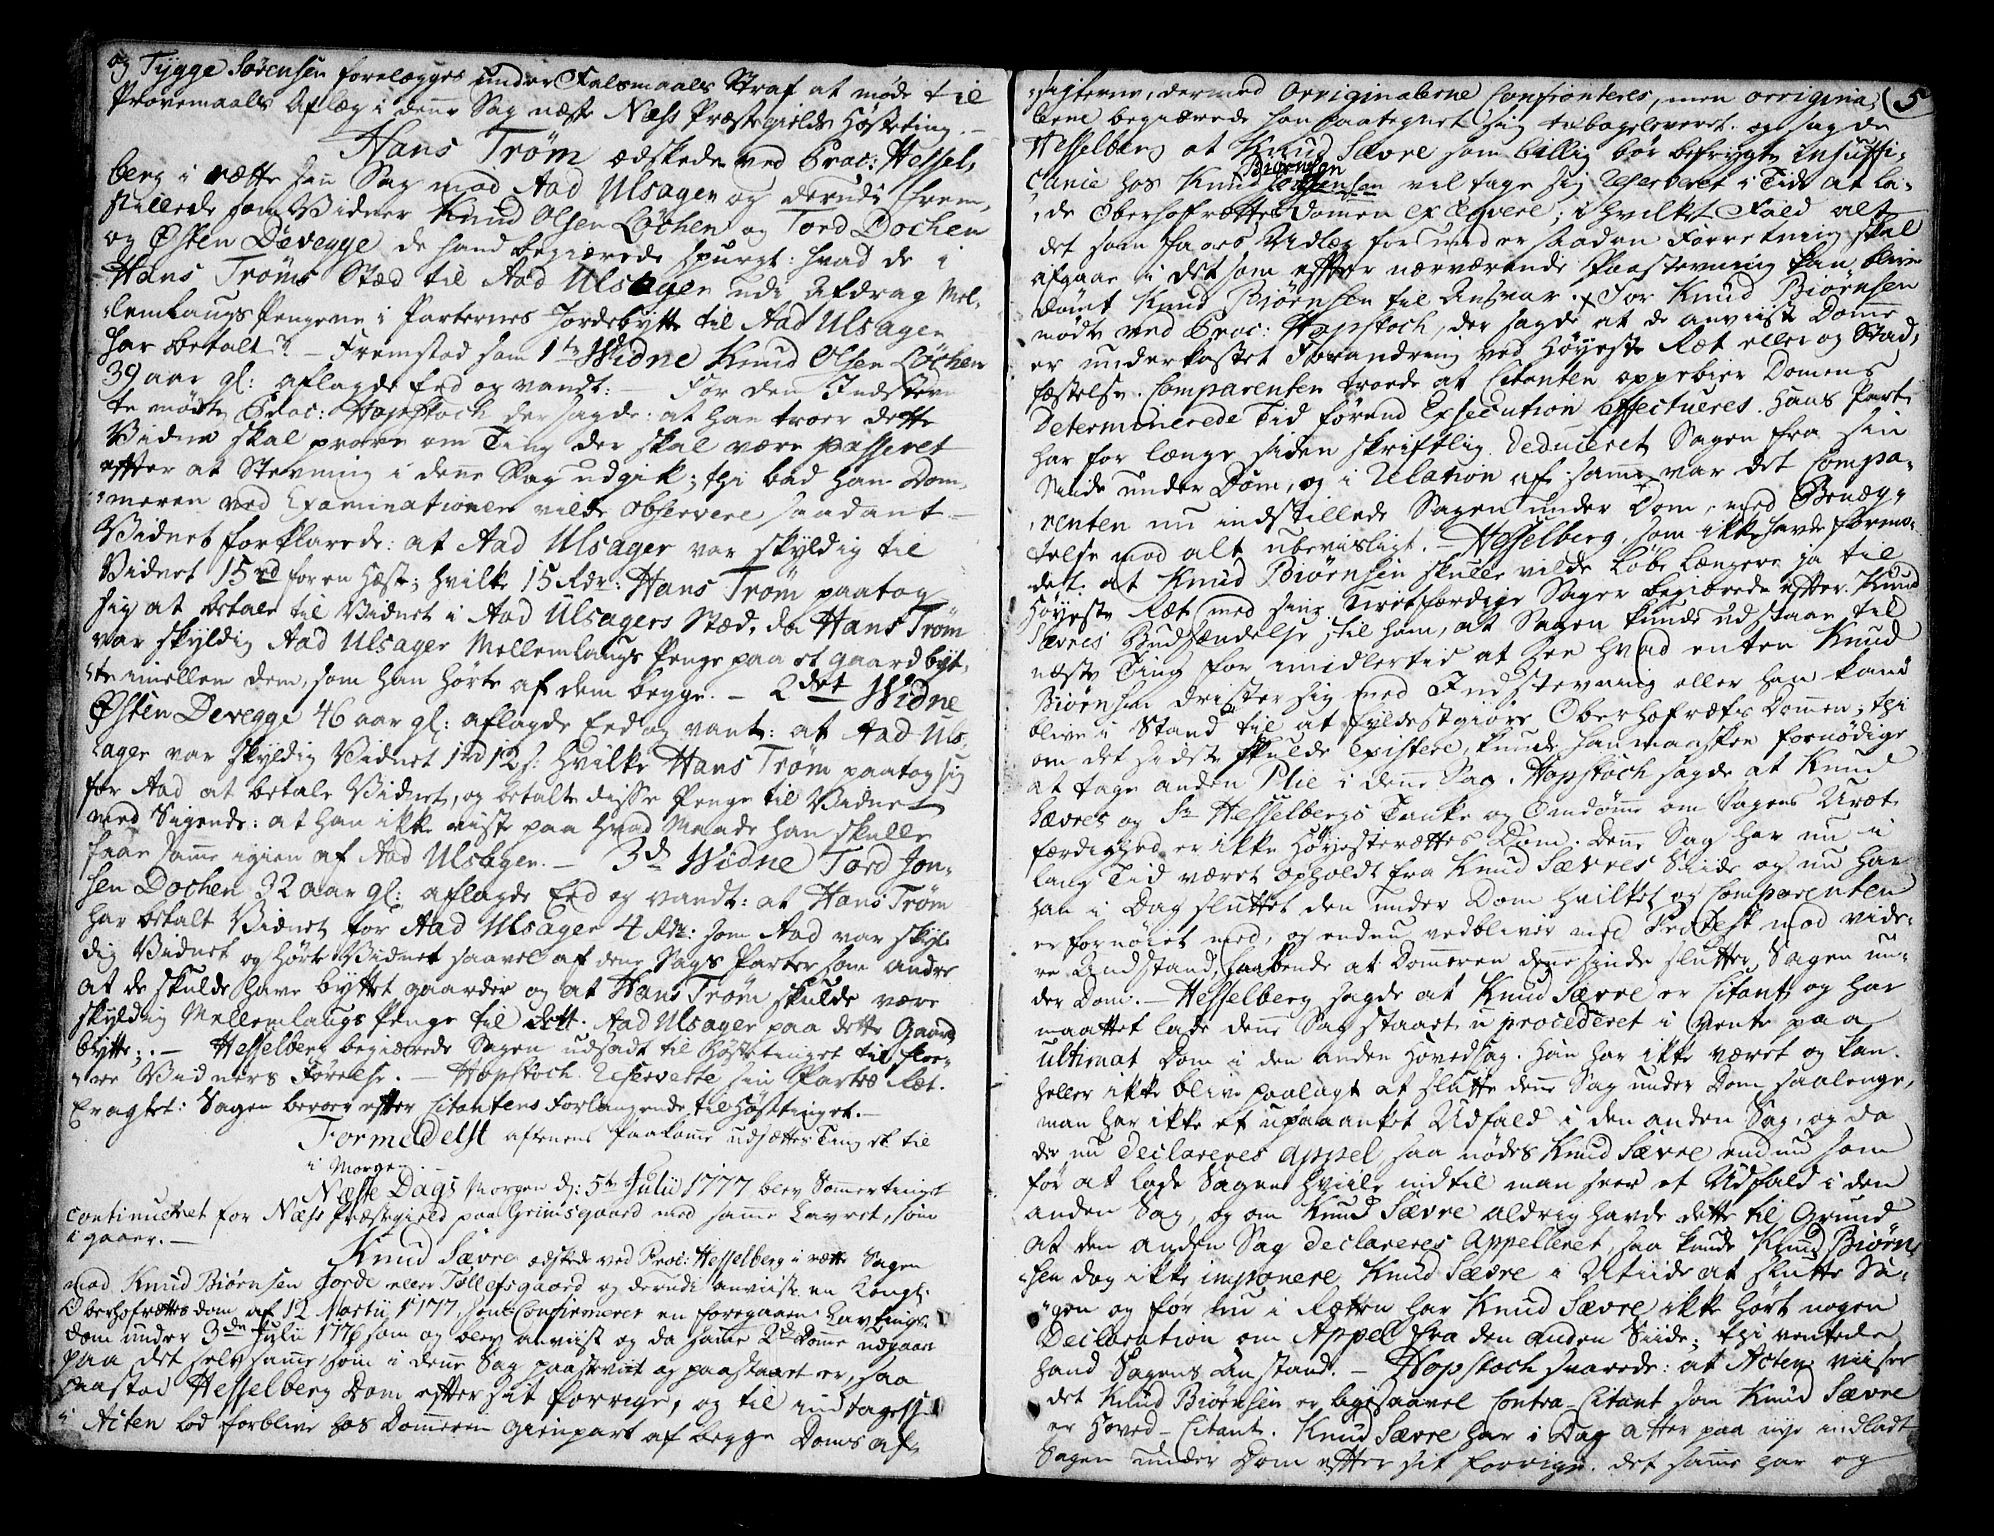 og Tygge Sørensen forelægges under Falsmaals Straf at møde til
Provemaals Aflæg i denne Sag næste Næss Præstegields Høsteting. –
Hans Trøm ædskede ved Proc: Hessel-
berg i rætte sin Sag mod Aad Ulsager og derudi frem-
stillede som Vidner Knud Olsen Løchen og Tord Dochen
og Østen Devegge de hand begiærede spurgt: hvad de i
Hans Trøms Stæd til Aad Ulsager udi Afdrag Mel-
lemlaugs Pengene i Parternes Jordebytte til Aad Ulsager
har betalt? – Fremstod som 1te Widne Knud Olsen Løchen
39 aar gl: aflagde Eed og vandt: – For den Indstevn
te mødte Proc: Hopstoch der sagde: at han troer dette
Vidne skal prove om Ting der skal være passeret
efter at Stevning i denne Sag udgik; thi bad han Dom-
meren ved Examinationen vilde observere saadant –
Vidnet forklarede: at Aad Ulsager var skyldig til
Vidnet 15 rd for en Hæst; hvilke 15 Rdr: Hans Trøm paatog
sig at betale til Vidnet i Aad Ulsagers Stæd, da Hans Trøm
var skyldig Aad Ulsager Mellemlaugs Penge paa et gaardbyt-
te imellem dem, som han hørte af dem begge. – 2det Widne
Østen Devegge 46 aar gl: aflagde Eed og vant: at Aad Ul-
sager var skyldig Vidnet 1 rd 12 s: hvilke Hans Trøm paatog sig
for Aad at betale Vidnet, og betalte disse Penge til Vidnet
med Sigende: at han ikke viste paa hvad Maade han skulle
faae samme igien af Aad Ulsager. – 3de Widne Tord Jon-
sen Dochen 32 aar gl: aflagde Eed og vandt: at Hans Trøm
har betalt Vidnet for Aad Ulsager 4 Rdr: som Aad var skyl-
dig Vidnet og hørte Vidnet saavel af denne Sags Parter som andre
at de skulde have byttet gaarder og at Hans Trøm skulde være
skyldig Mellemlaugs Penge til Aad Ulsager paa dette Gaard
bytte; . – Hesselberg begiærede Sagen udsadt til Høstetinget til fler-
re Vidners Førelse. – Hopstoch reserverte sin Partes Ræt.
Eragtet: Sagen beroer efter Citantens Forlangende til Høstetinget. –
Formedelst aftenens Paakomme udsættes Tinget til
i Morgen. –
Næste Dags Morgen d: 5te Julii 1777 blev Sommertinget
continueret for Næss Præstegield paa Grimsgaard med samme Lavret, som
i gaaer. –
Knud Sævre ædskede ved Proc: Hesselberg i rætte Sagen
mod Knud Biørnsen Gorde eller Tollefsgaard og derudi anviiste en Kongl:
Oberhofrættes dom af 12 Martii 1777, som Confirmerer en foregaaen Lavtings
dom under 3de Julii 1776 som og blev anviist og da samme 2de Domme udgaar
paa det selvsamme, som i denne Sag paastevnt og paastaaet er, saa
paastod Hesselberg Dom efter sit forrige, og til indtagelse
i Acten lod forblive hos Dommeren Gienpart af begge Doms af-
5
sigterne, dermed Orriginalerne Confronteres, men orrigina-
lerne begiærede han paategnet sig tilbageleveret. og sagde
Hesselberg at Knud Sævre som billig bør befrygte insuffi-
Biørnsen
cance hos Knud vil tage sig Reserveret i Tide at la-
de Oberhofrættes Domen exeqvere; i hvilket Fald alt
det som faaes Udlæg for under saadan Forretning skal
afgaae i det som efter nærværende Paastevning kan blive
dømt Knud Biørnsen til Ansvar. For Knud Biørnsen
mødte ved Proc: Hopstoch, der sagde at de anviiste Domme
er underkastet Forandring ved Høyeste Ræt eller og Stad-
fæstelse. Comparenten troede at Citanten oppebier Domens
Determinerede Tid førend Exsecution effectueres. Hans Part
har for længe siden skriftlig deduceret Sagen fra sin
Siide under Dom, og i Relation af samme var det Compa-
renten nu indstillede Sagen under Dom, med Benæg-
telse mod alt ubevisligt. – Hesselberg, som ikke havde formo-
det at Knud Biørnsen skulle vilde løbe længere ja til
Høyeste Ræt med sine Uretfærdige Sager begiærede efter Knud
Sævres Budsændelse til ham, at Sagen kunde udstaae til
næste Ting for imidlertid at see hvad enten Knud
Biørnsen drister sig med Indstevning eller han kand
blive i Stand til at fyldestgiøre Oberhofrættes Dommen; thi
om det sidste skulde existere, kunde han maaskee fornødige
at tage anden Plie i denne Sag. Hopstoch sagde at Knud
Sævres og Sr Hesselbergs Tanke og Omdømme om Sagens Uræt
færdighed er ikke Høyesterættes Dom. Denne Sag har nu i
lang Tid været opholdt fra Knud Sævres Siide og nu har
han i Dag sluttet den under Dom hvilket og Comparenten
er fornøiet med, og endnu vedbliver med Protest mod vide-
re Udstand, haabende at Dommeren dennesinde slutter Sagen un-
der Dom. – Hesselberg sagde at Knud Sævre er Citant og har
maattet lade denne Sag staaet u-procederet i Vente paa
ultimat Dom i den anden Hovedsag. Han har ikke været og kan
heller ikke blive paalagt at slutte denne Sag under Dom saalænge,
man har ikke et upaaanket Udfald i den anden Sag, og da
der nu declareres appel, saa nødes Knud Sævre endnu som
før at lade Sagen hviile indtil man seer et Udfald i den
anden Sag, og om Knud Sævre aldrig havde dette til Grund
at den anden Sag declareres Appelleret saa kunde Knud Biørn-
sen dog ikke imponere Knud Sævre i Utiide at slutte Sa-
gen og før nu i Rætten har Knud Sævre ikke hørt nogen
Declaration om Appel fra den anden Siide; thi ventede
hand Sagens Anstand. – Hopstoch svarede: at Acten viiser
det Knud Biørnsen er ligesaavel Contra-Citant som Knud Sævre
er Hoved-Citant. Knud Sævre har i Dag atter paa nye indladt
Sagen under Dom efter sit forrige. det samme har og